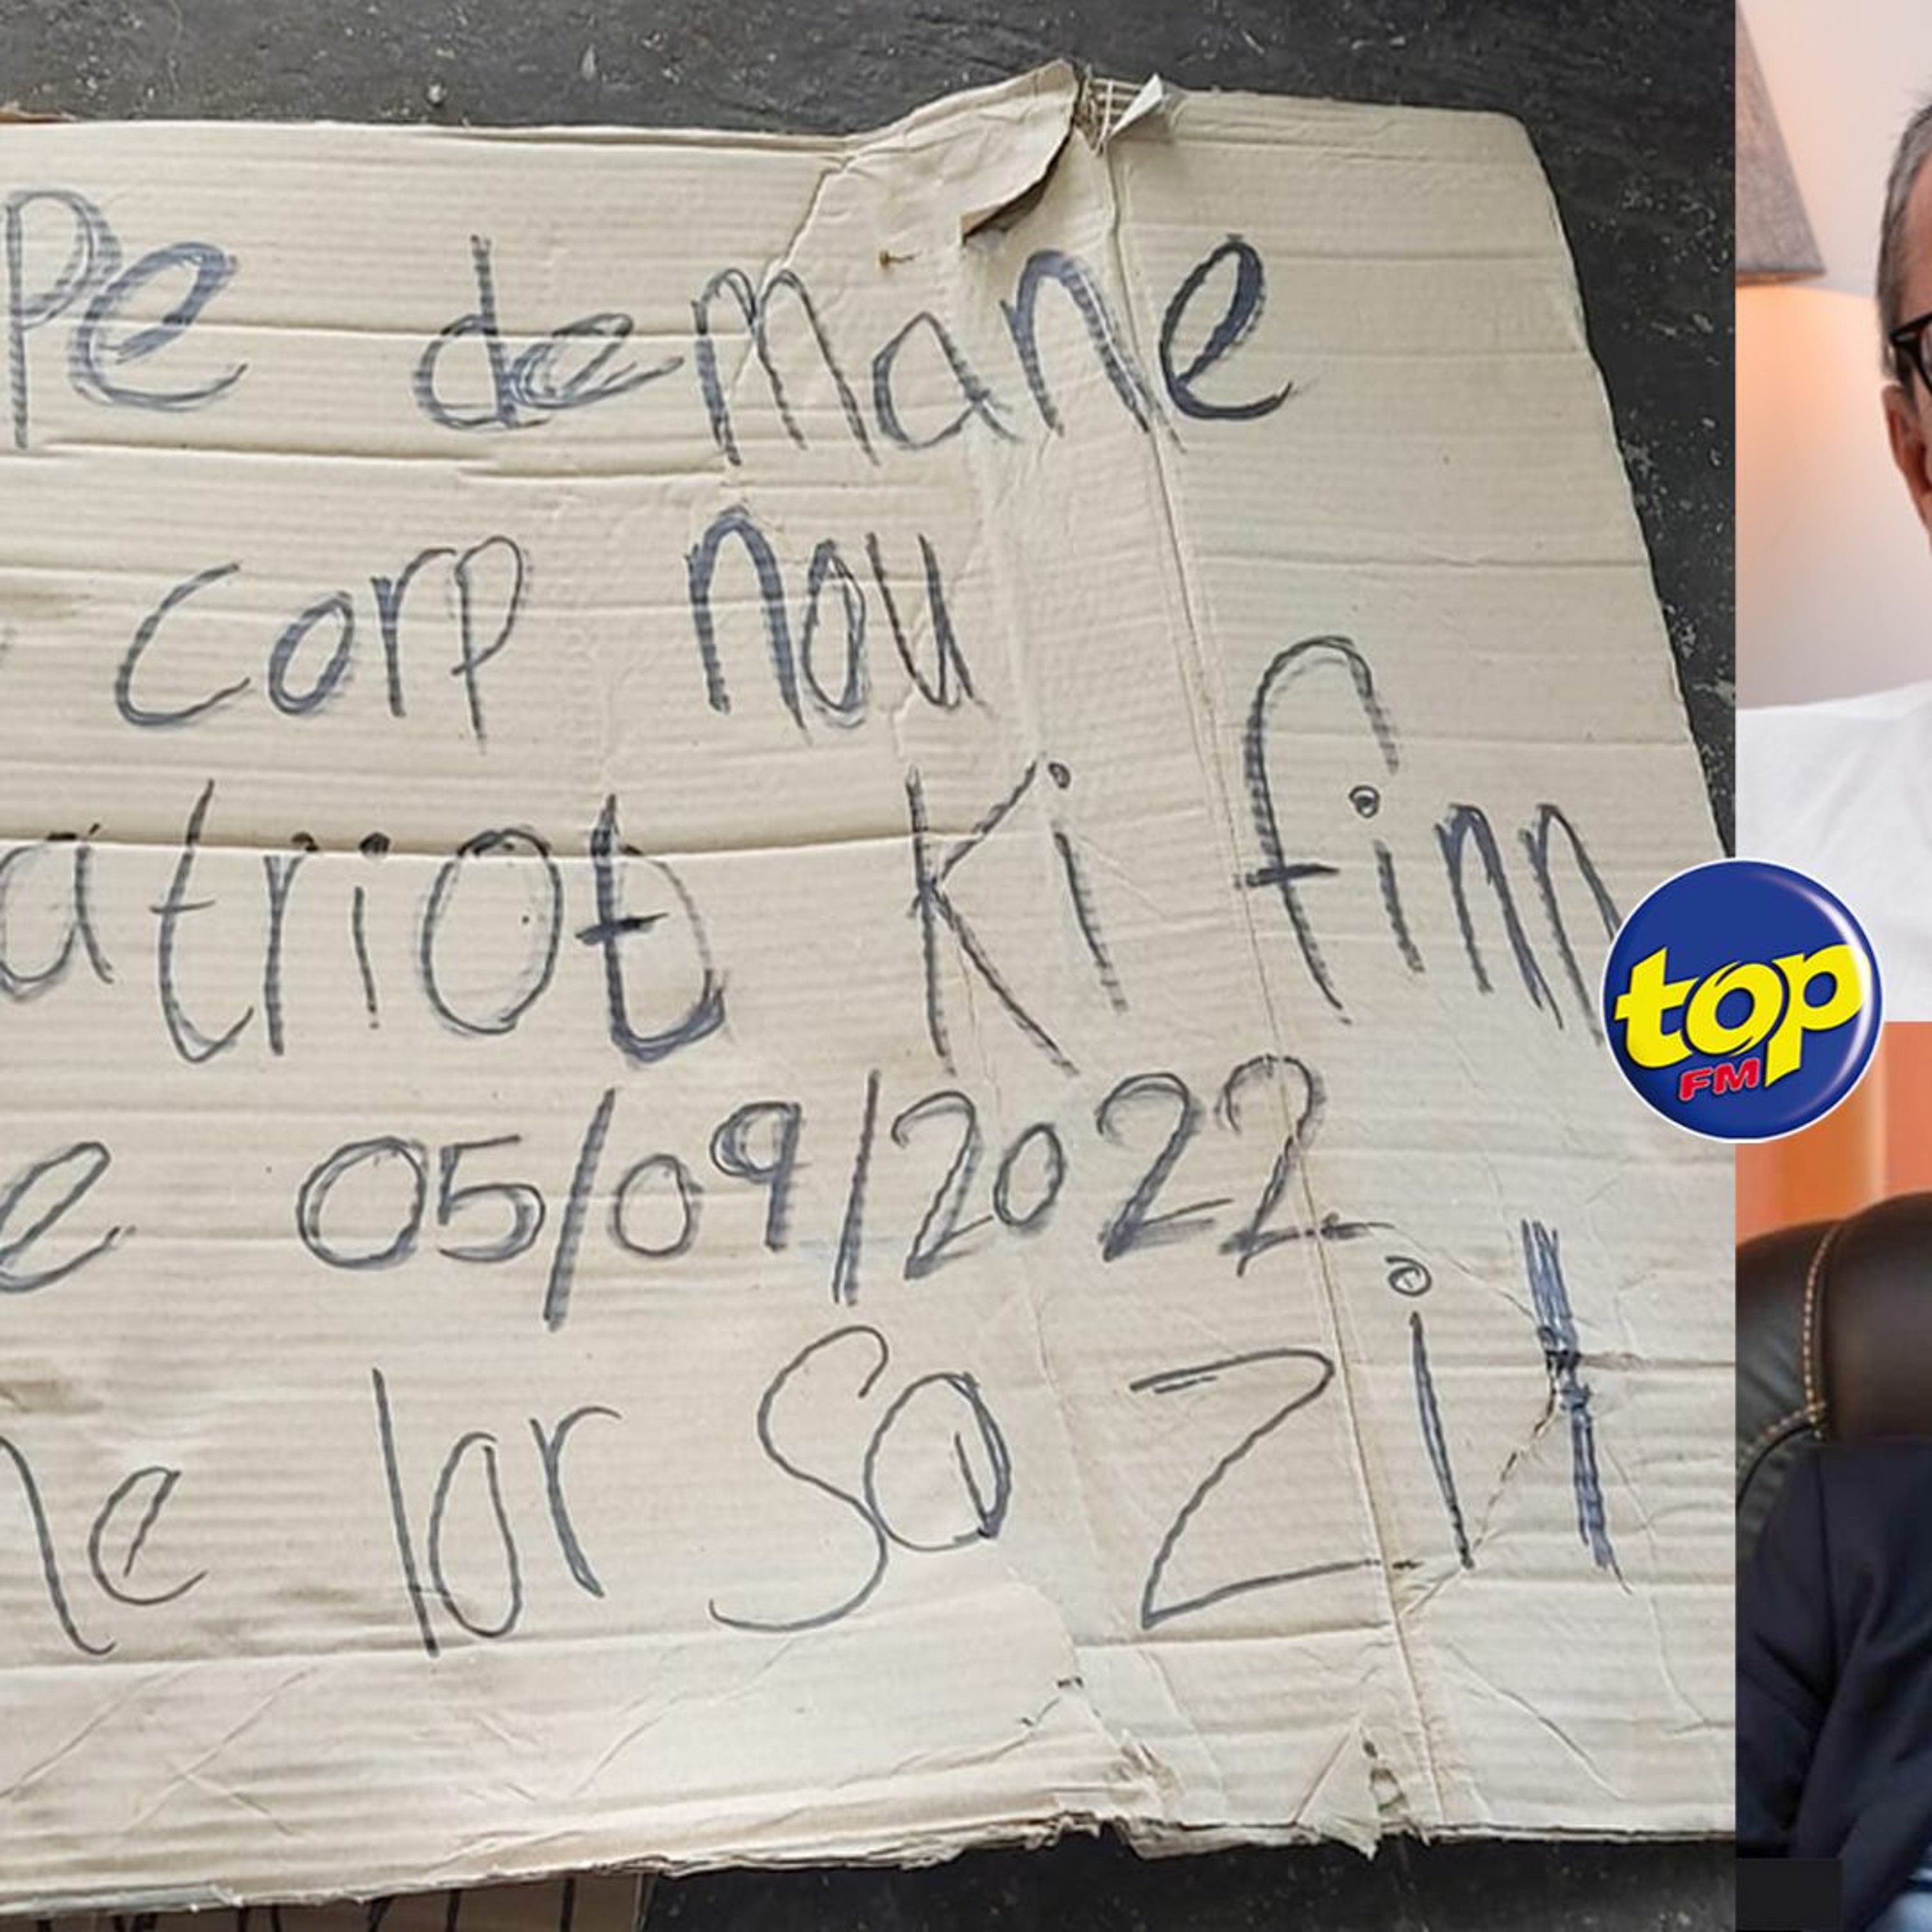 Pe demane
corp nou
atriot ki finn
e 05/09/2022
ne lor so zil
top
FM